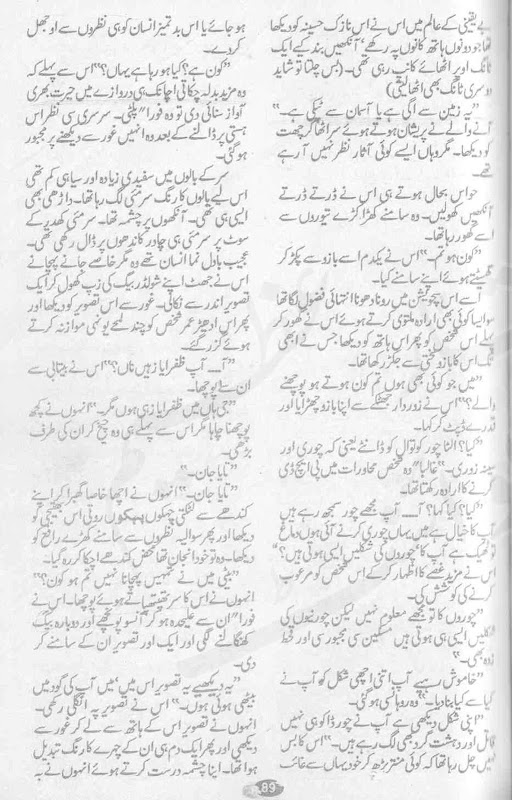 بے یقینی کے عالم میں اس نے اس نازک حسینہ کو دیکھا
تھا جو دونوں ہاتھ کانوں پہ رکھے' آنکھیں بند کیے ایک
ٹانگ اوپر اٹھائے کانپ رہی تھی۔ (بس چلتا تو شاید
دوسری ٹانگ بھی اٹھالیتی)
”یہ زمین سے اگی ہے یا آسمان سے ٹپکی ہے۔“
آنے والے نے پریشان ہوتے ہوئے سر اٹھا کر چھت
کو دیکھا۔ مگر وہاں ایسے کوئی آثار نظر نہیں آرہے
تھے۔
حواس بحال ہوتے ہی اس نے ڈرتے ڈرتے
آنکھیں کھولیں۔ وہ سامنے کھڑا کڑے تیوروں سے
اسے گھور رہا تھا۔
”کون ہو تم۔“ اس نے یکدم اسے بازو سے پکڑ کر
گھسیٹتے ہوئے اپنے سامنے کیا۔
اسے اس پچویشن میں رونا دھونا انتہائی فضول لگا تھا
سو ایسا کوئی بھی ارادہ ملتوی کرتے ہوئے اس نے گھور کر
پہلے اس شخص کو پھر اس ہاتھ کو دیکھا جس نے ابھی
تک اس کا بازو سختی سے جکڑ رکھا تھا۔
”میں جو کوئی بھی ہوں تم کون ہوتے ہو پوچھنے
والے؟“ اس نے زوردار جھٹکے سے اپنا بازو چھڑایا اور
قدرے ڈپٹ کر کہا۔
”کیا؟ الٹا چور کوتوال کو ڈانٹے یعنی کہ چوری اور
سینہ زوری۔“ غالباً ”وہ شخص محاورات میں پی ایچ ڈی
کرنے کا ارادہ رکھتا تھا۔
”کیا؟ کیا کہا؟ آ۔۔۔ آپ مجھے چور سمجھ رہے ہیں
آپ کا خیال ہے میں یہاں چوری کرنے آئی ہوں دماغ
تو ٹھیک ہے آپ کا' چوروں کی شکلیں ایسی ہوتی ہیں؟“
اس نے مزید غصے کا اظہار کر کے اس شخص کو مرعوب
کرنے کی کوشش کی۔
”چوروں کا تو مجھے معلوم نہیں لیکن چورنیوں کی
شکلیں ایسی ہی ہوتی ہیں' مسکین سی مجبور سی اور قحط
زدہ بھی۔“
”خاموش رہیے آپ اتنی اچھی شکل کو آپ نے
کیا سے کیا بنا دیا۔“ وہ روہانسی ہو گئی۔
”اپنی شکل دیکھی ہے آپ نے چور ڈاکو ہی نہیں
قاتل اور دہشت گرد بھی لگ رہے ہیں۔“ اس کا بس
نہیں چل رہا تھا کہ کوئی منتر پڑھ کر خود یہاں سے غائب
ہو جائے یا اس بدتمیز انسان کو ہی نظروں سے اوجھل
کردے۔
”کون ہے؟ کیا ہو رہا ہے یہاں؟“ اس سے پہلے کہ
وہ مزید بدلہ چکاتی اچانک ہی دروازے میں حیرت بھری
آواز سنائی دی تو وہ فوراً پلٹی۔ سرسری سی نظر اس
ہستی پر ڈالنے کے بعد وہ انہیں غور سے دیکھنے پر مجبور
ہو گئی۔
سر کے بالوں میں سفیدی زیادہ اور سیاہی کم تھی
اس لیے بالوں کا رنگ سرمئی لگ رہا تھا۔ داڑھی بھی
ایسی ہی تھی۔ آنکھوں پر چشمہ تھا۔ سرمئی کھدر کے
سوٹ پر سرمئی ہی چادر کاندھوں پر ڈال رکھی تھی۔
عجیب باؤل نما انسان تھے وہ مگر خاصے جانے پہچانے
اس نے جھٹ اپنے شولڈر بیگ کی زپ کھول کر ایک
تصویر اندر سے نکالی۔ غور سے اس تصویر کو دیکھا اور
پھر اس ادھیڑ عمر شخص کو چند لمحے یونہی موازنہ کرتے
ہوئے گزر گئے۔
”آ۔۔ آپ ظفر ایاز ہیں ناں؟“ اس نے بیتابی سے
ان سے پوچھا۔
”جی ہاں میں ظفر ایاز ہی ہوں مگر۔“ انہوں نے کچھ
پوچھنا چاہا مگر اس سے پہلے ہی وہ چیخ کر ان کی طرف
بڑھی۔
”تایا جان۔“
”تایا جان۔“ انہوں نے اچھا خاصا گھبرا کر اپنے
کندھے سے لٹکی ہچکوں پہکوں روتی اس بھتیجی کو
دیکھا اور پھر سوالیہ نظروں سے سامنے کھڑے رافع کو
دیکھا۔ وہ تو خود انجان تھا محض کندھے اچکا کر رہ گیا۔
”بیٹی میں نے تمہیں پہچانا نہیں تم ہو کون؟“
انہوں نے اس کا سر تھپتھپاتے ہوئے پوچھا۔ اس نے
فوراً ان سے علیحدہ ہو کر آنسو پونچھے اور دوبارہ بیگ
کھنگالنے لگی اور ایک اور تصویر ان کے سامنے کر
دی۔
”یہ دیکھیے یہ تصویر اس میں' میں آپ کی گود میں
بیٹھی ہوئی ہوں۔“ اس نے تصویر پہ انگلی رکھی۔
انہوں نے تصویر اس کے ہاتھ سے لے کر غور سے
دیکھی اور پھر ایک دم ہی ان کے چہرے کا رنگ تبدیل
ہوا تھا۔ اپنا چشمہ درست کرتے ہوئے انہوں نے بہ
89